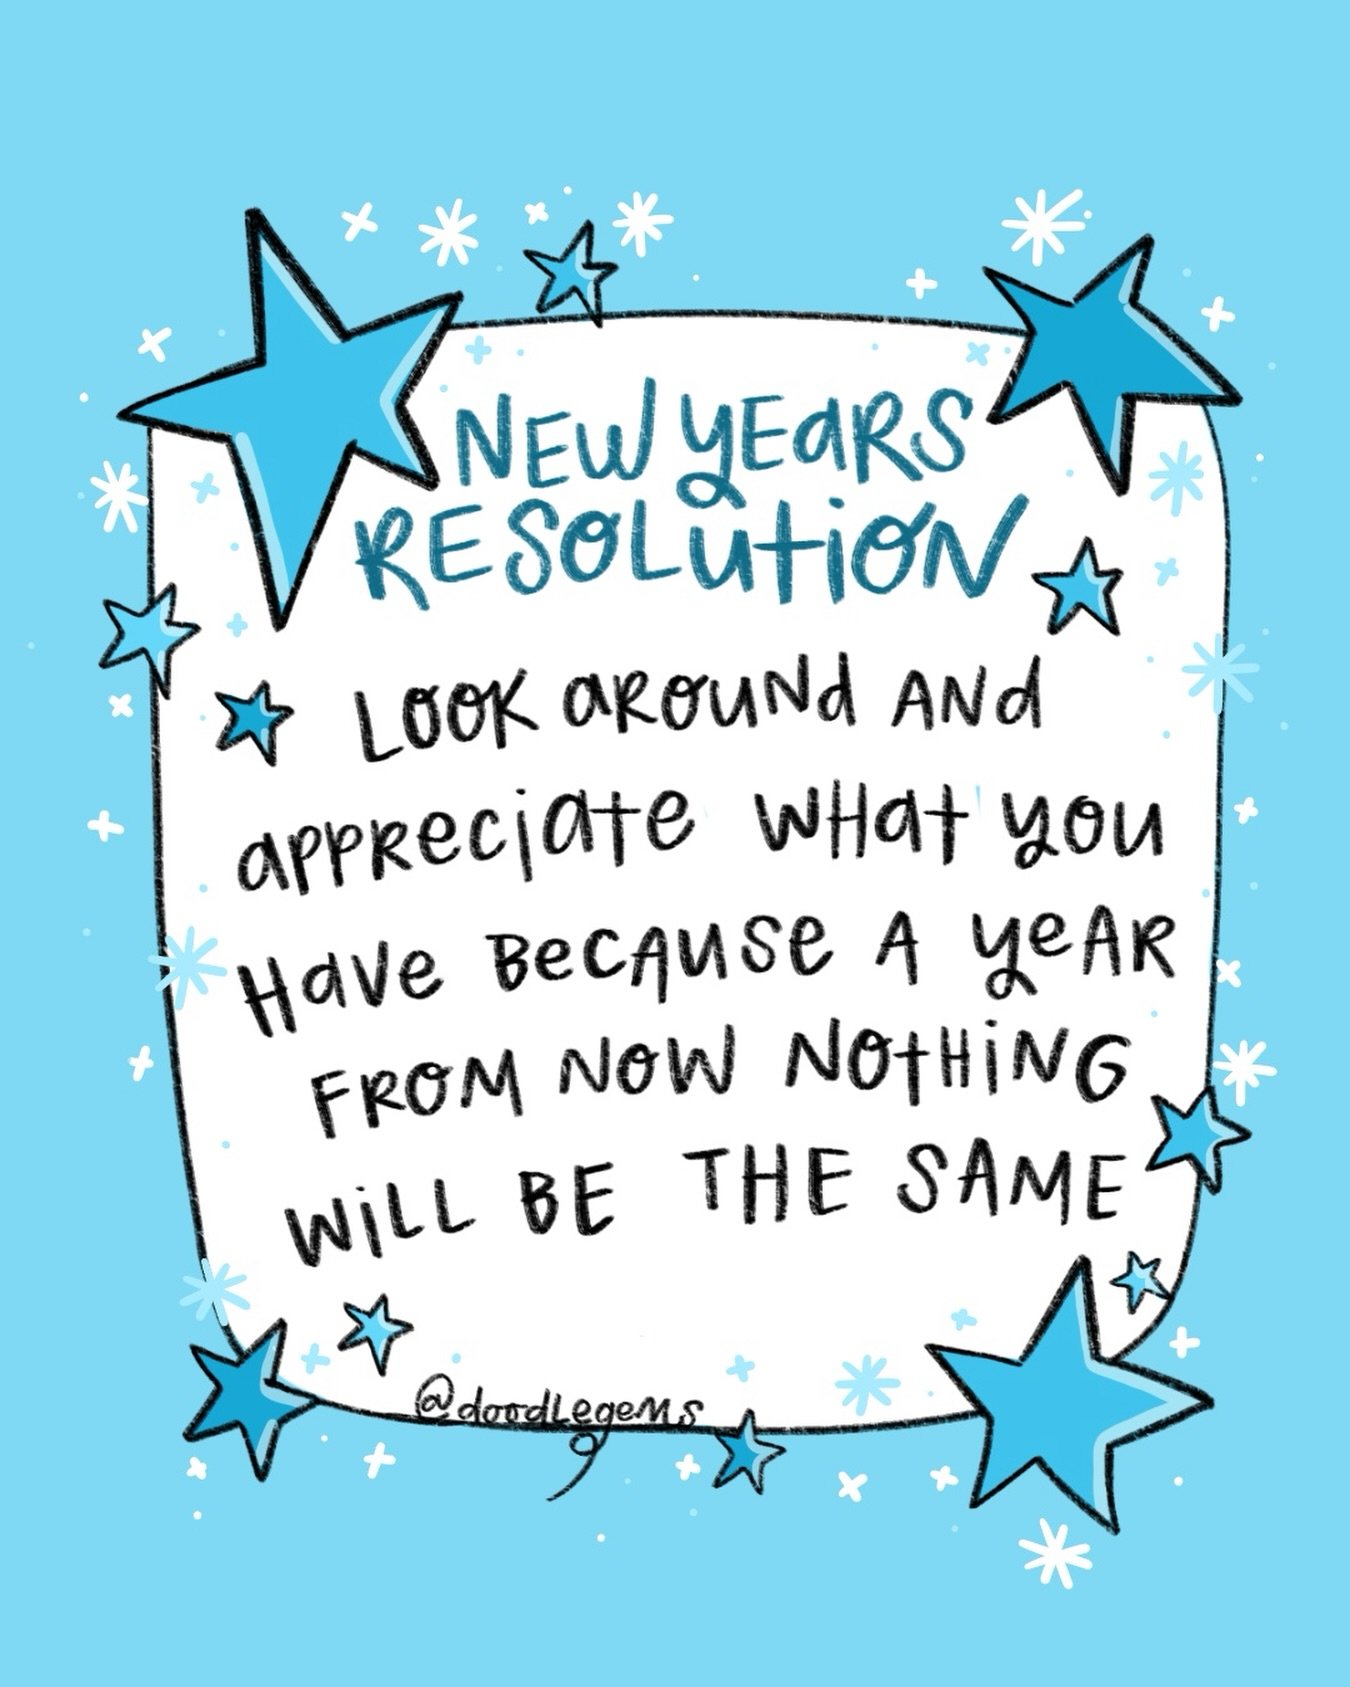 NEW YEARS
RESOLUTION
LOOK AROUND AND
APPRECIATE WHAT YOU
HAVE BECAUSE A YEAR
FROM NOW NOTHING
WILL BE THE SAME
@doodlegems